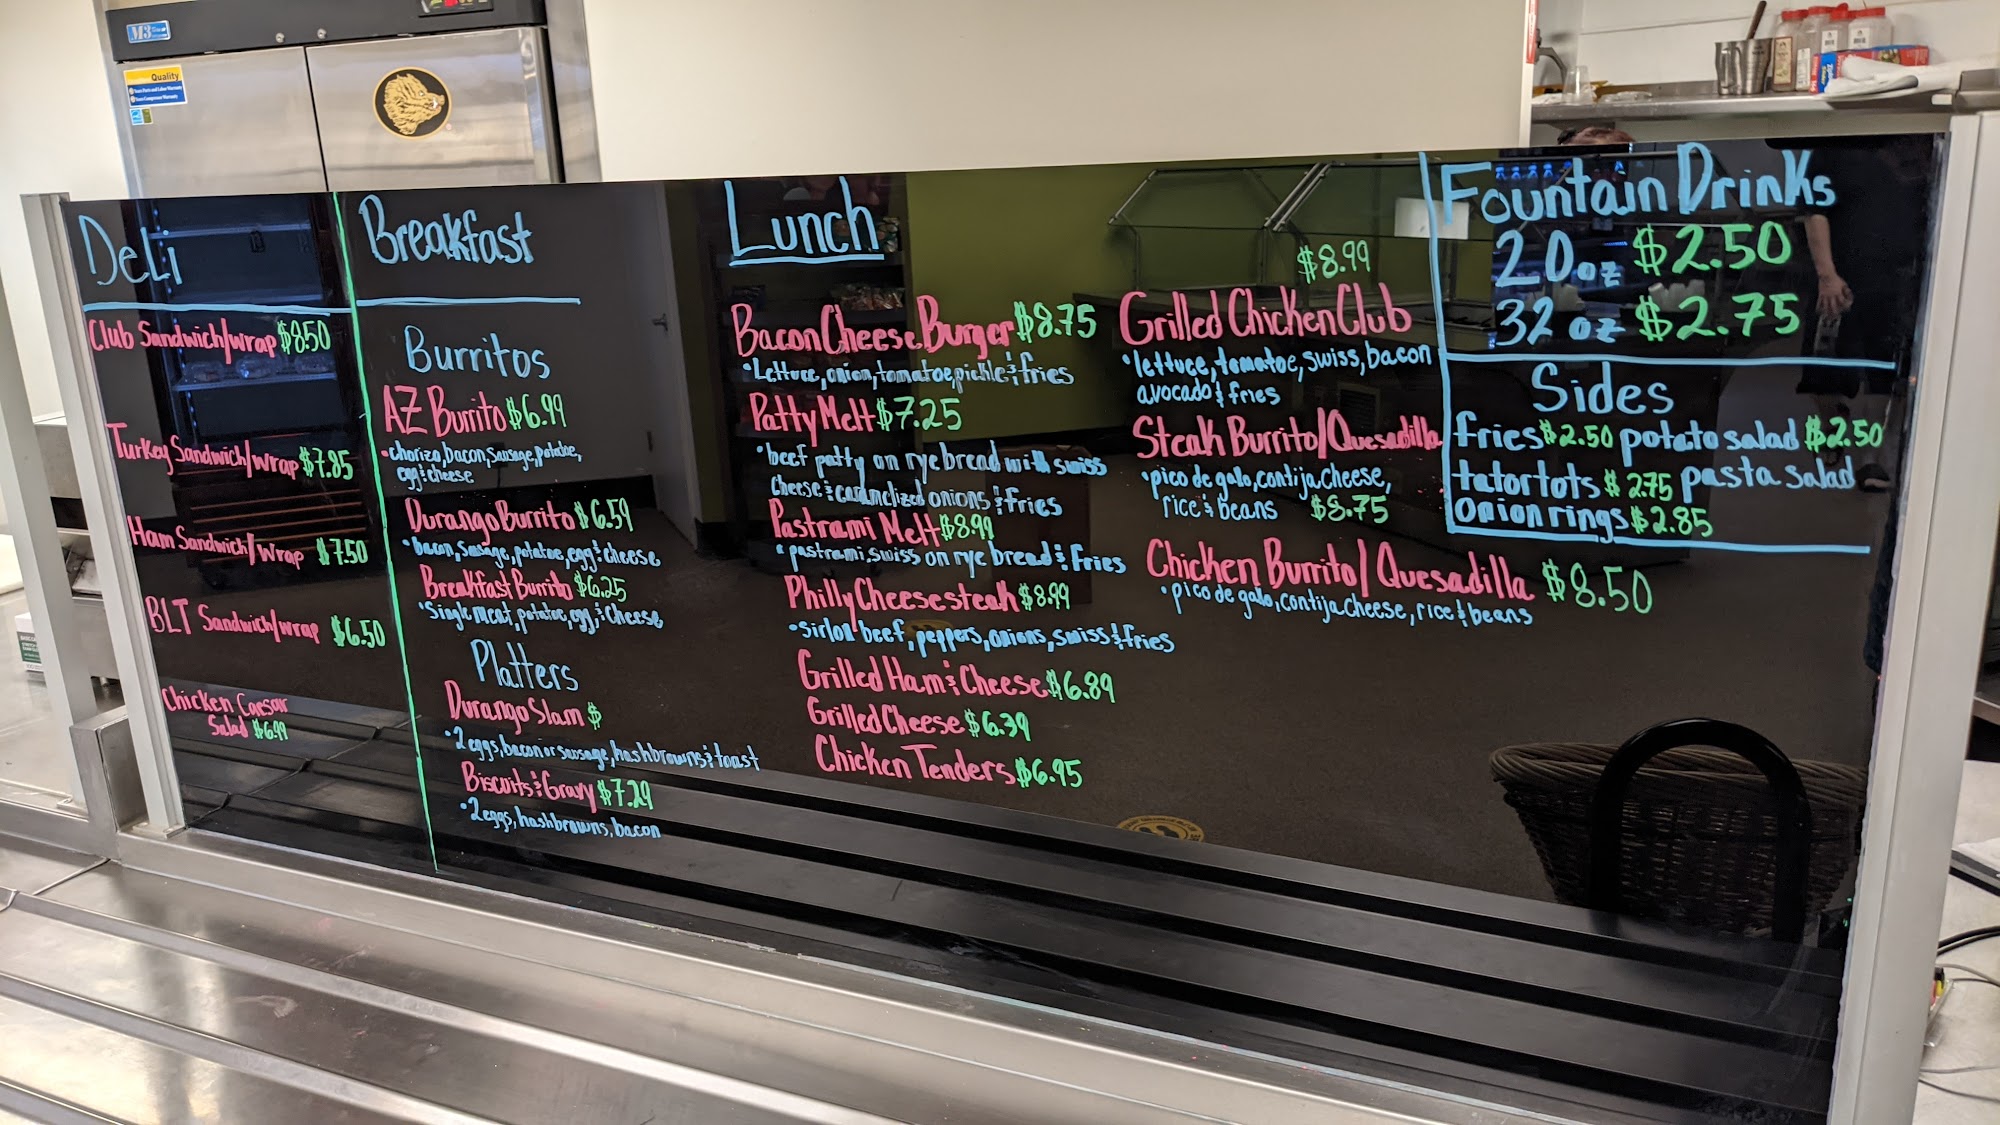 M3
Quality
Deli
Club Sandwich/wrap $8.50
Turkey Sandwich/wrap $7.85
Ham Sandwich/wrap $7.50
BLT Sandwich/wrap $6.50
Chicken Caesar
Salad $6.99
Breakfast
Burritos
AZ Burrito $6.99
•chorizo, bacon, sausage, potatoe,
egg & cheese
Durango Burrito $6.59
•bacon, sausage, potatoe, egg & cheese
Breakfast Burrito $6.25
•Single meat, potatoe, egg, & cheese
Platters
Durango Slam $
•2 eggs, bacon or sausage, hashbrowns & toast
Biscuits & Gravy $7.29
•2 eggs, hashbrowns, bacon
Lunch
Bacon Cheese Burger $8.75
•Lettuce, onion, tomatoe, pickle & fries
Patty Melt $7.25
•beef patty on rye bread with swiss
cheese & caramelized onions & fries
Pastrami Melt $8.99
•pastrami, swiss on rye bread & fries
Philly Cheesesteak $8.99
•sirlon beef, peppers, onions, swiss & fries
Grilled Ham & Cheese $6.89
Grilled Cheese $6.39
Chicken Tenders $6.95
$8.99
Grilled Chicken Club
•lettuce, tomatoe, swiss, bacon
avocado & fries
Steak Burrito/Quesadilla
•pico de galo, contija cheese,
rice & beans $8.75
Chicken Burrito/Quesadilla $8.50
•pico de gallo, contija cheese, rice & beans
Fountain Drinks
20 oz $2.50
32 oz $2.75
Sides
fries $2.50 potato salad $2.50
tatortots $2.75 pasta salad
onion rings $2.85